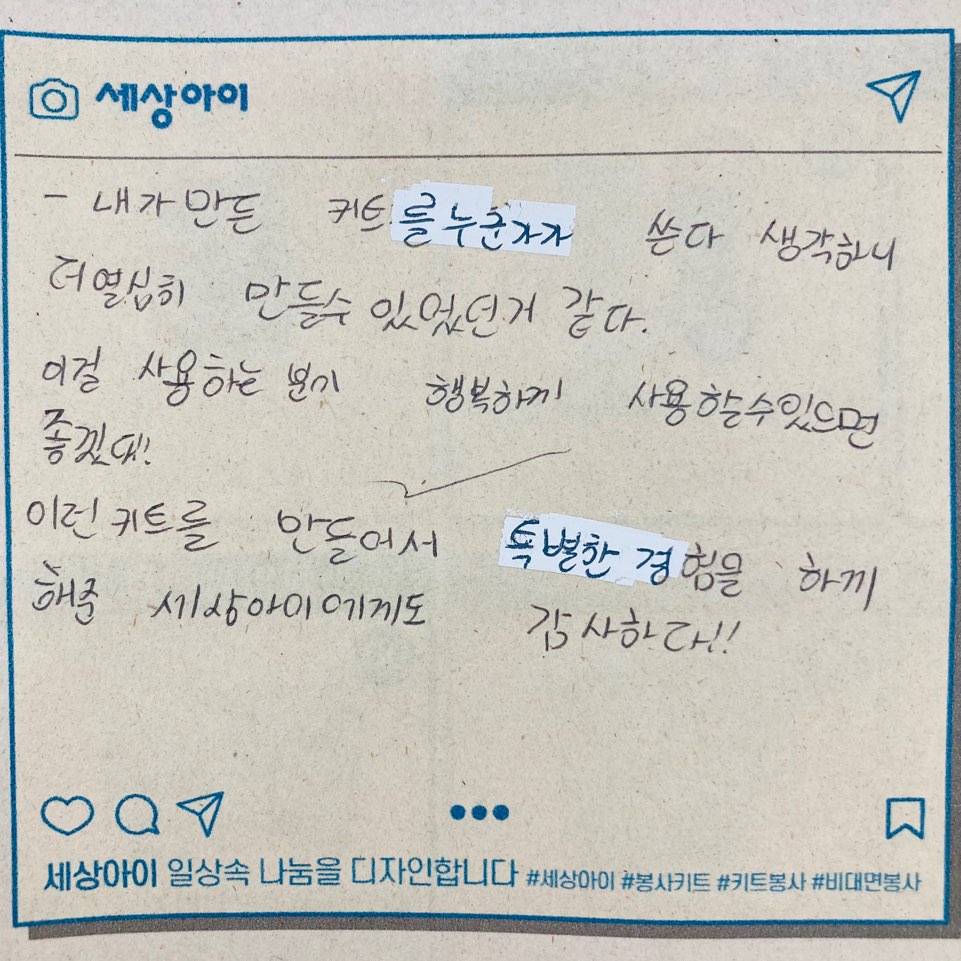 세상아이
- 내가 만든 키트를 누군가가 쓴다 생각하니
더 열심히 만들수 있었던거 같다.
이걸 사용하는 분이 행복하게 사용할수있으면
좋겠다!
이런 키트를 만들어서 특별한 경험을 하게
해준 세상아이에게도 감사하다!!
세상아이 일상속 나눔을 디자인합니다 #세상아이 #봉사키트 #키트봉사 #비대면봉사